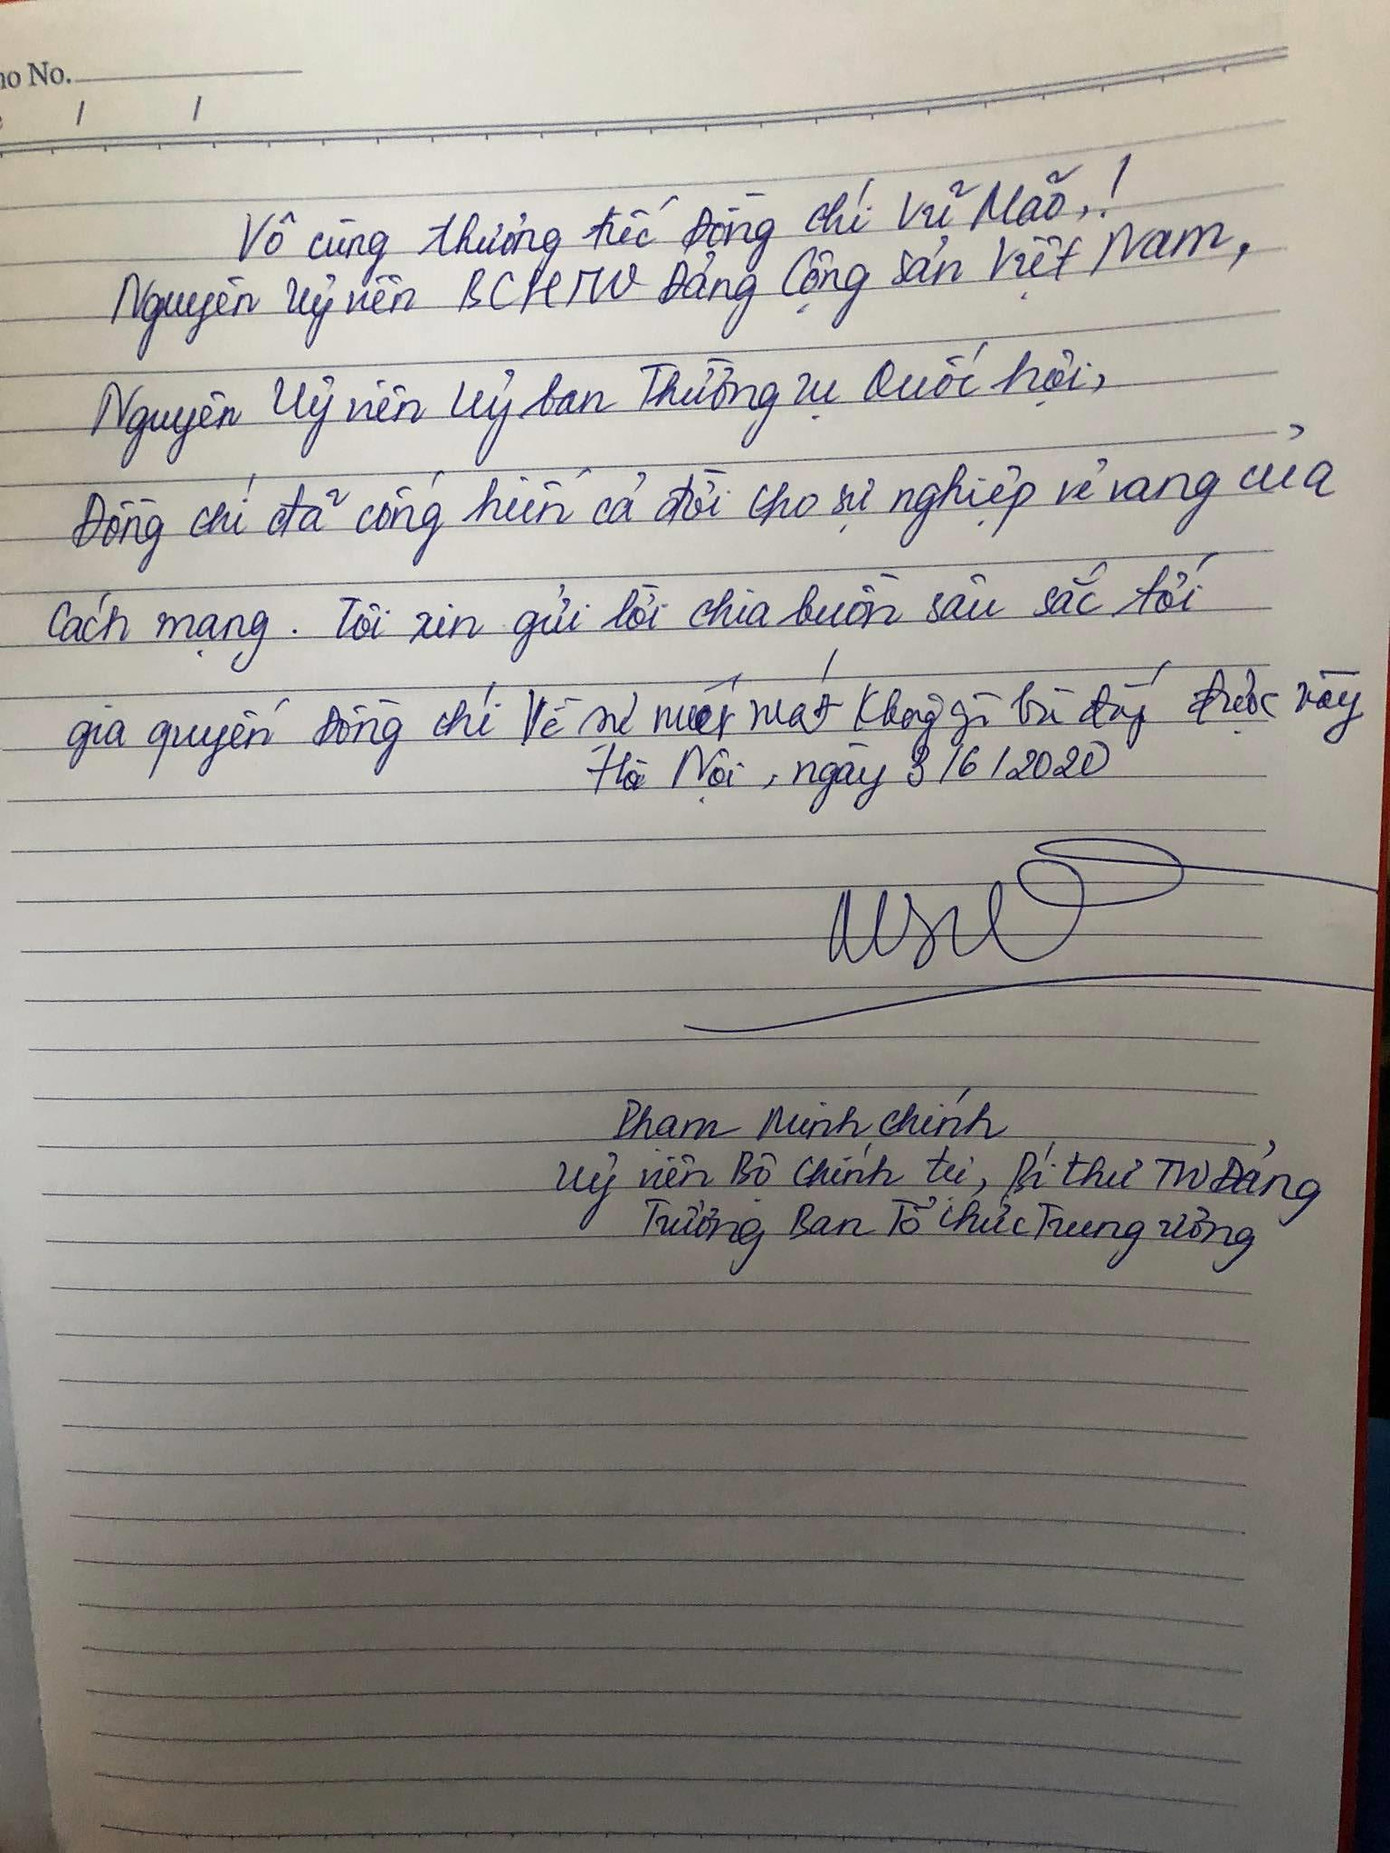 no No.
/ /
Vô cùng thương tiếc đồng chí Vũ Mão,!
Nguyên Uỷ viên BCHTW Đảng Cộng sản Việt Nam,
Nguyên Uỷ viên Uỷ ban Thường vụ Quốc hội,
Đồng chí đã cống hiến cả đời cho sự nghiệp vẻ vang của
Cách mạng. Tôi xin gửi lời chia buồn sâu sắc tới
gia quyến đồng chí Về sự mất mát không gì bù đắp được này
Hà Nội, ngày 3/6/2020
Phạm Minh Chính
Uỷ viên Bộ Chính trị, Bí thư TW Đảng
Trưởng Ban Tổ chức Trung ương